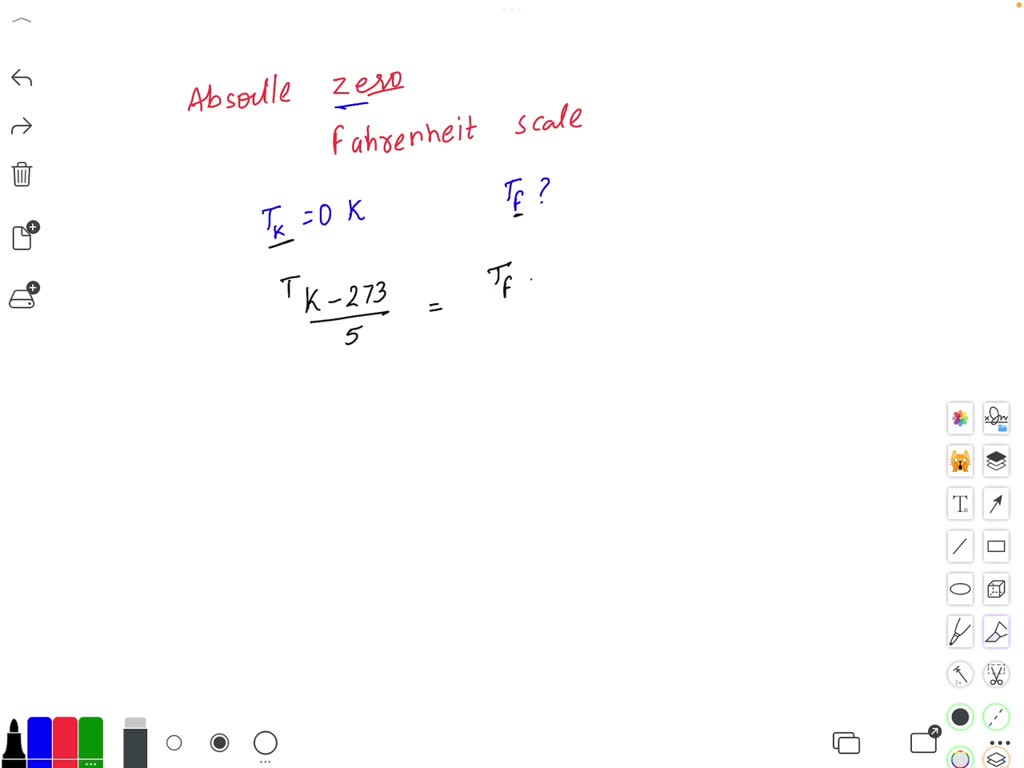 Absoulle zero
fahrenheit scale
T_K = 0 K T_f ?
T K - 273 = T_f
5